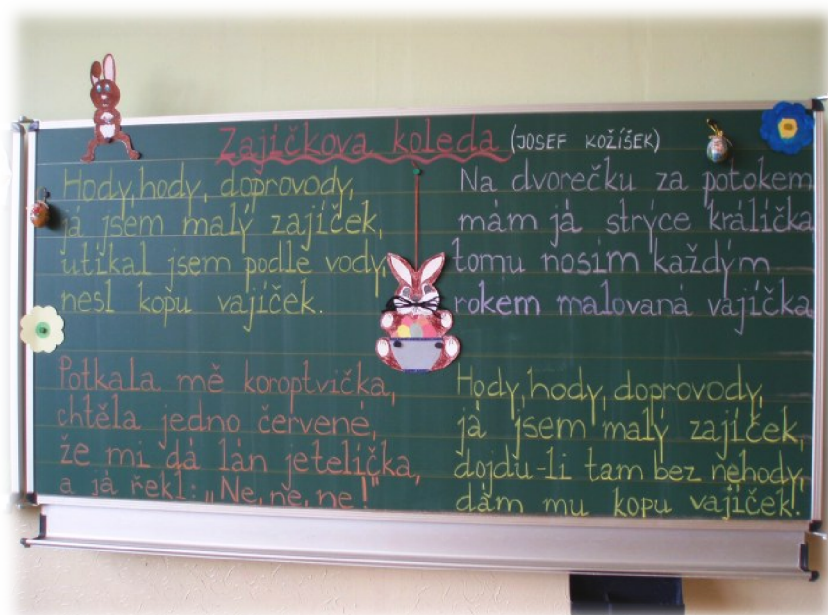 Zajíčkova koleda (JOSEF KOŽÍŠEK)
Hody, hody, doprovody,
já jsem malý zajíček,
utíkal jsem podle vody,
nesl kopu vajíček.
Potkala mě koroptvička,
chtěla jedno červené,
že mi dá lán jetelíčka,
a já řekl: „Ne, ne, ne!"
Na dvorečku za potokem
mám já strýce králíčka
tomu nosím každým
rokem malovaná vajíčka
Hody, hody, doprovody,
já jsem malý zajíček,
dojdu-li tam bez nehody,
dám mu kopu vajíček!